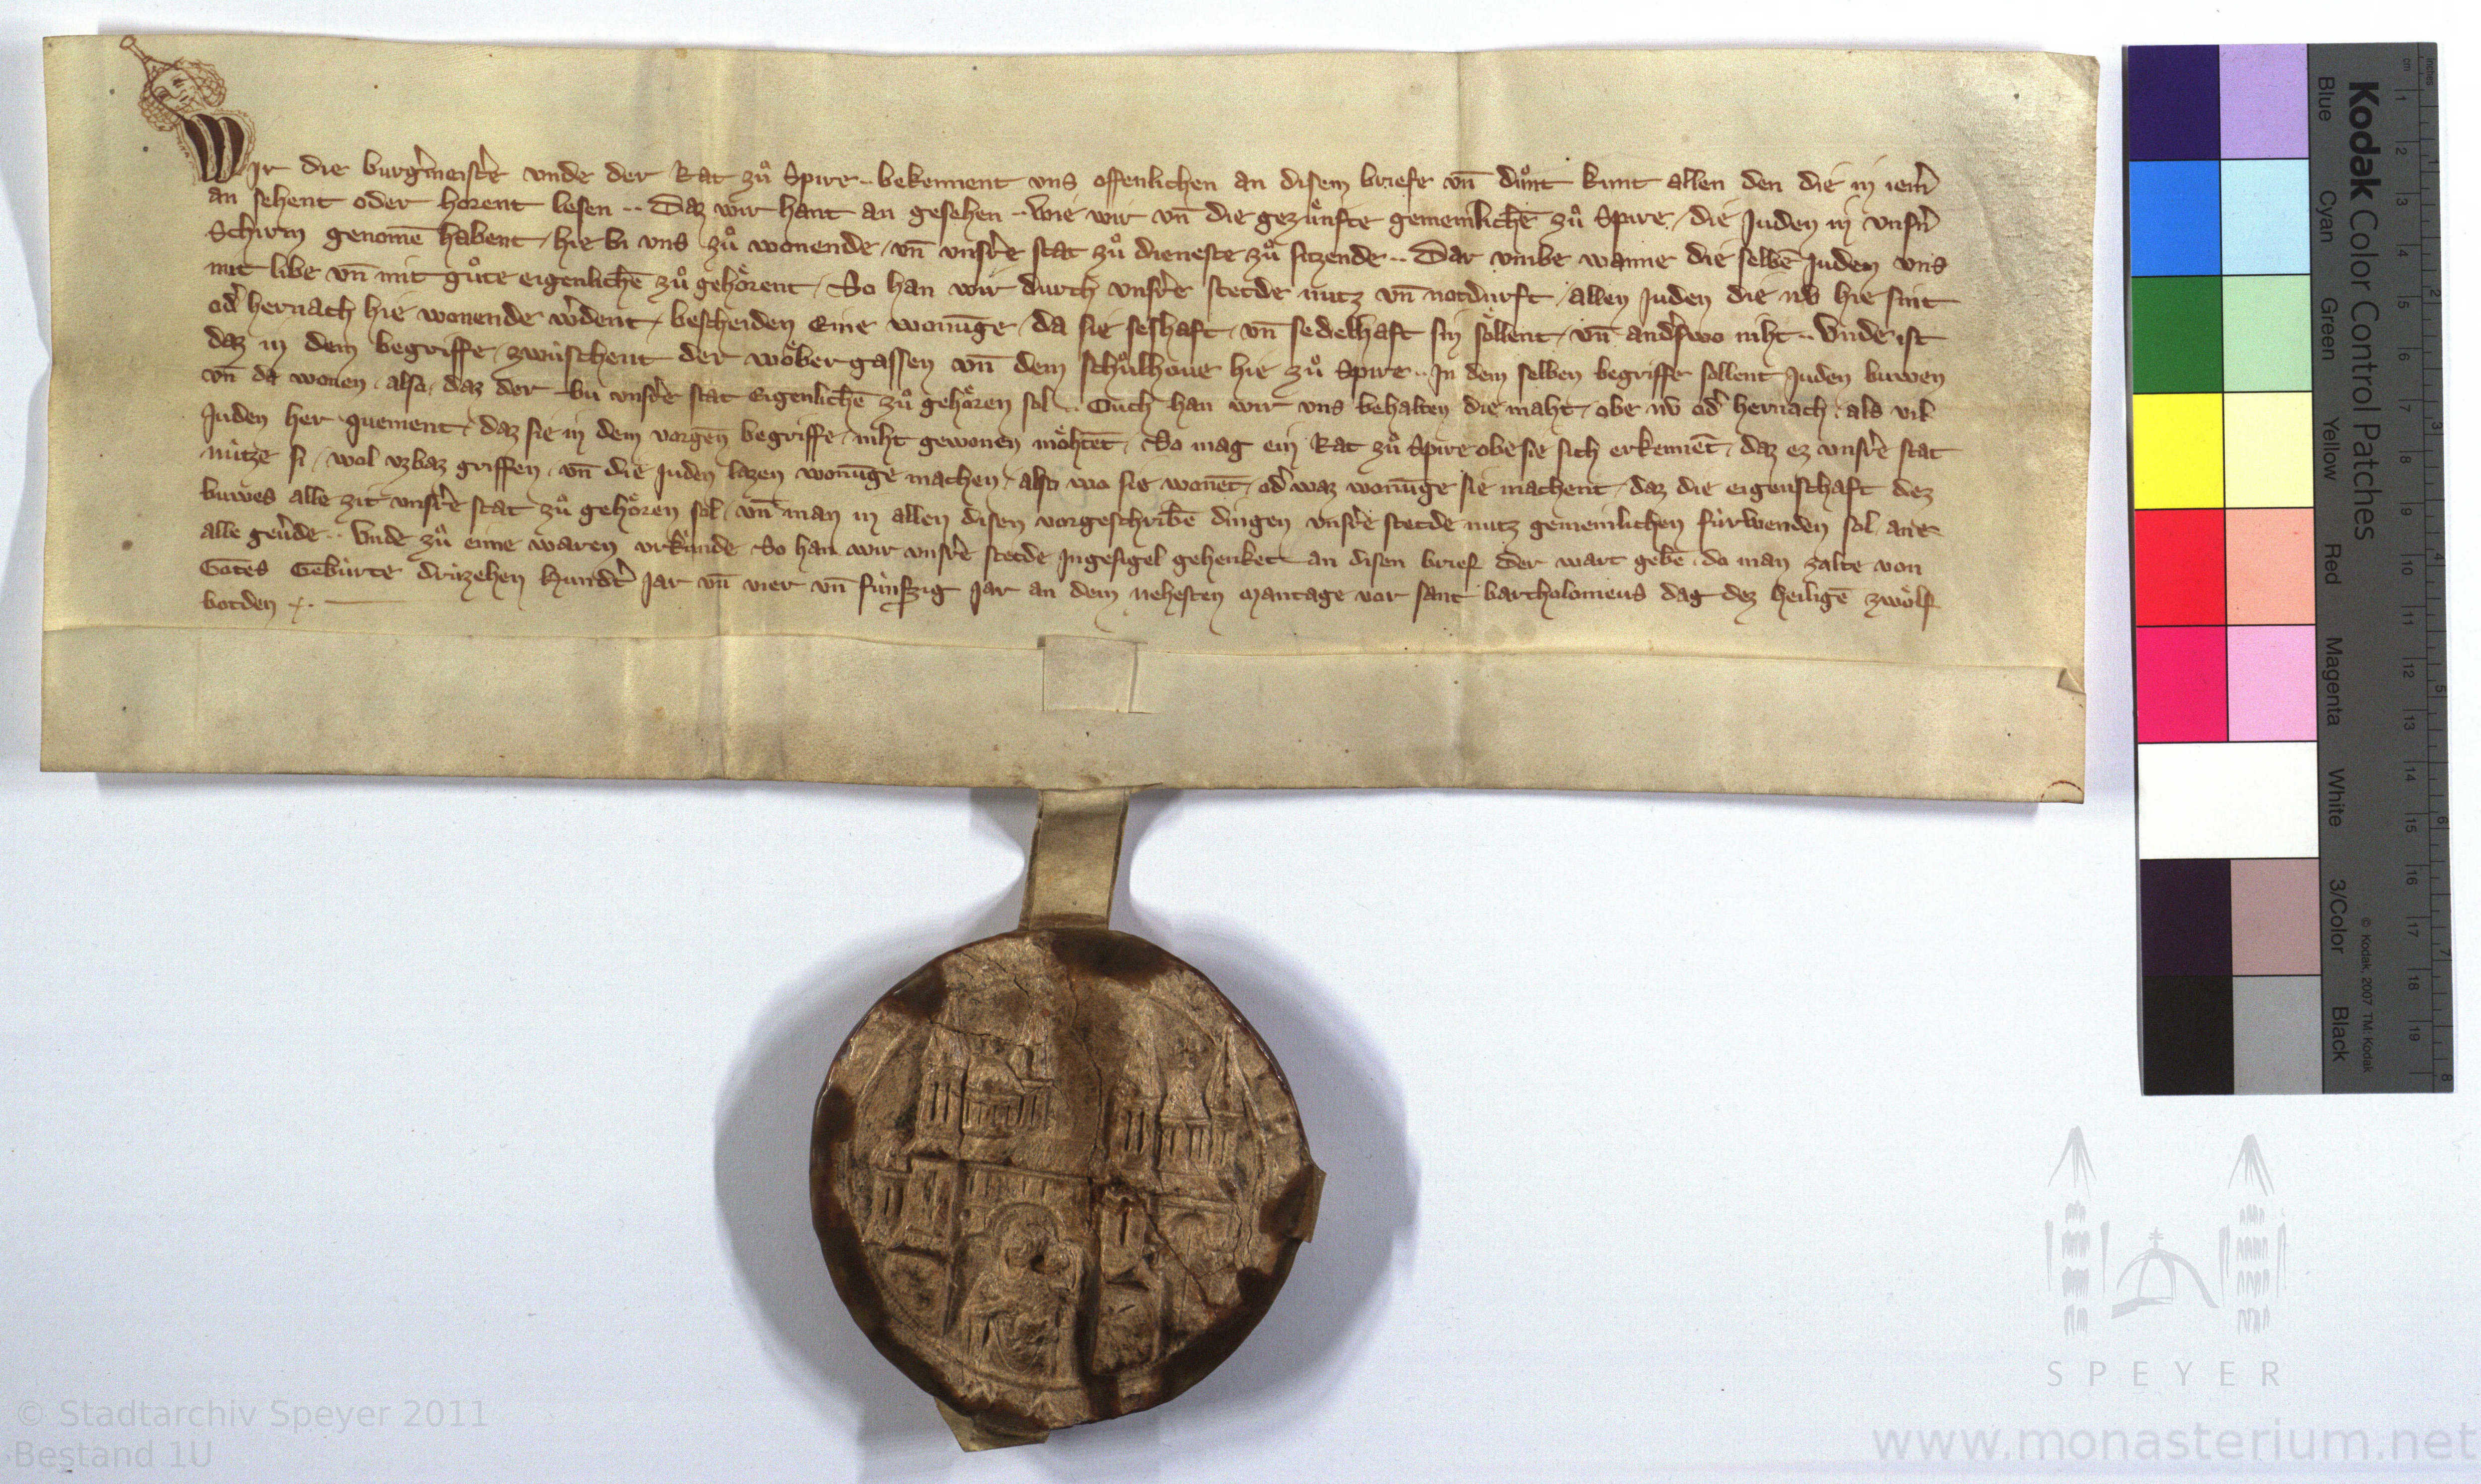 Wir die burg̾meist̾e vnde der Rat zuͦ Spire ·· bekennent vns offenlichen an disem briefe vn̄ duͦnt kunt allen den die in iem̾
an sehent oder horent lesen ·· Daz wir hant an gesehen ·· wie wir vn̄ die gezuͤnfte gemeinlichē zuͦ Spire / die Juden in vnsn̾
Schirm genomē habent / hie bi vns zuͦ wonende / vn̄ vnsr̾e stat zuͦ dieneste zuͦ sitzende ·· Dar vmbe wanne die selbē Juden vns
mit libe vn̄ mit guͦte eigenlichē zuͦ gehoͤrent / So han wir durch vnsr̾e stetde nutz vn̄ notdurft / allen Juden die nv hie sint
od̾ hernach hie wonende w̾dent / bescheiden Eine wonūge / da sie seshaft / vn̄ sedelhaft sin soͤllent / vn̄ and̾swo niht ·· Vnde ist
daz in dem begriffe / zwuͥschent der woͤber gassen vn̄ dem schuͦlhoue hie zuͦ Spire ·· In dem selben begriffe sollent Juden buwen
vn̄ da wonen / also / daz der bu vnsr̾e stat Eigenlichē zuͦ gehoͤren sol ·· Ouch han wir vns behalten die maht / obe nv od̾ hernach / als vil
Juden her quement / daz sie in dem vorgen̄ begriffe / niht gewonen moͤhtēt / So mag ein Rat zuͦ Spire obe sie sich erkennēt / daz ez vnsr̾e stat
nuͥtze si / wol vzbaz griffen / vn̄ die Juden lazen wonūge machen / also wo sie wonēt / od̾ waz wonūge sie machent / daz die eigenschaft dez
buwes alle zit vnsr̾e stat zuͦ gehoͤren sol / vn̄ man in allen disen vorgeschribē dingen vnsr̾e stetde nutz gemeinlichen fuͥrwenden sol / ane
alle gev̾de ·· Vnde zuͦ eime waren vrkuͥnde So han wir vnsr̾e stetde Ingesigel gehenket an disen brief der wart gebē / do man zalte von
Gotes Gebuͥrte druͥzehen Hundt̾ Jar vn̄ vier vn̄ fuͥnfzig Jar an dem nehesten Mantage vor sant bartholomeus dag dez heiligē zwoͤlf
botden
Kodak Color Control Patches
Blue Cyan Green Yellow Red Magenta White 3/Color Black
© Kodak, 2007 TM: Kodak
cm 1 2 3 4 5 6 7 8 9 10 11 12 13 14 15 16 17 18 19
inches 1 2 3 4 5 6 7 8
SPEYER
© Stadtarchiv Speyer 2011
Bestand 1U
www.monasterium.net